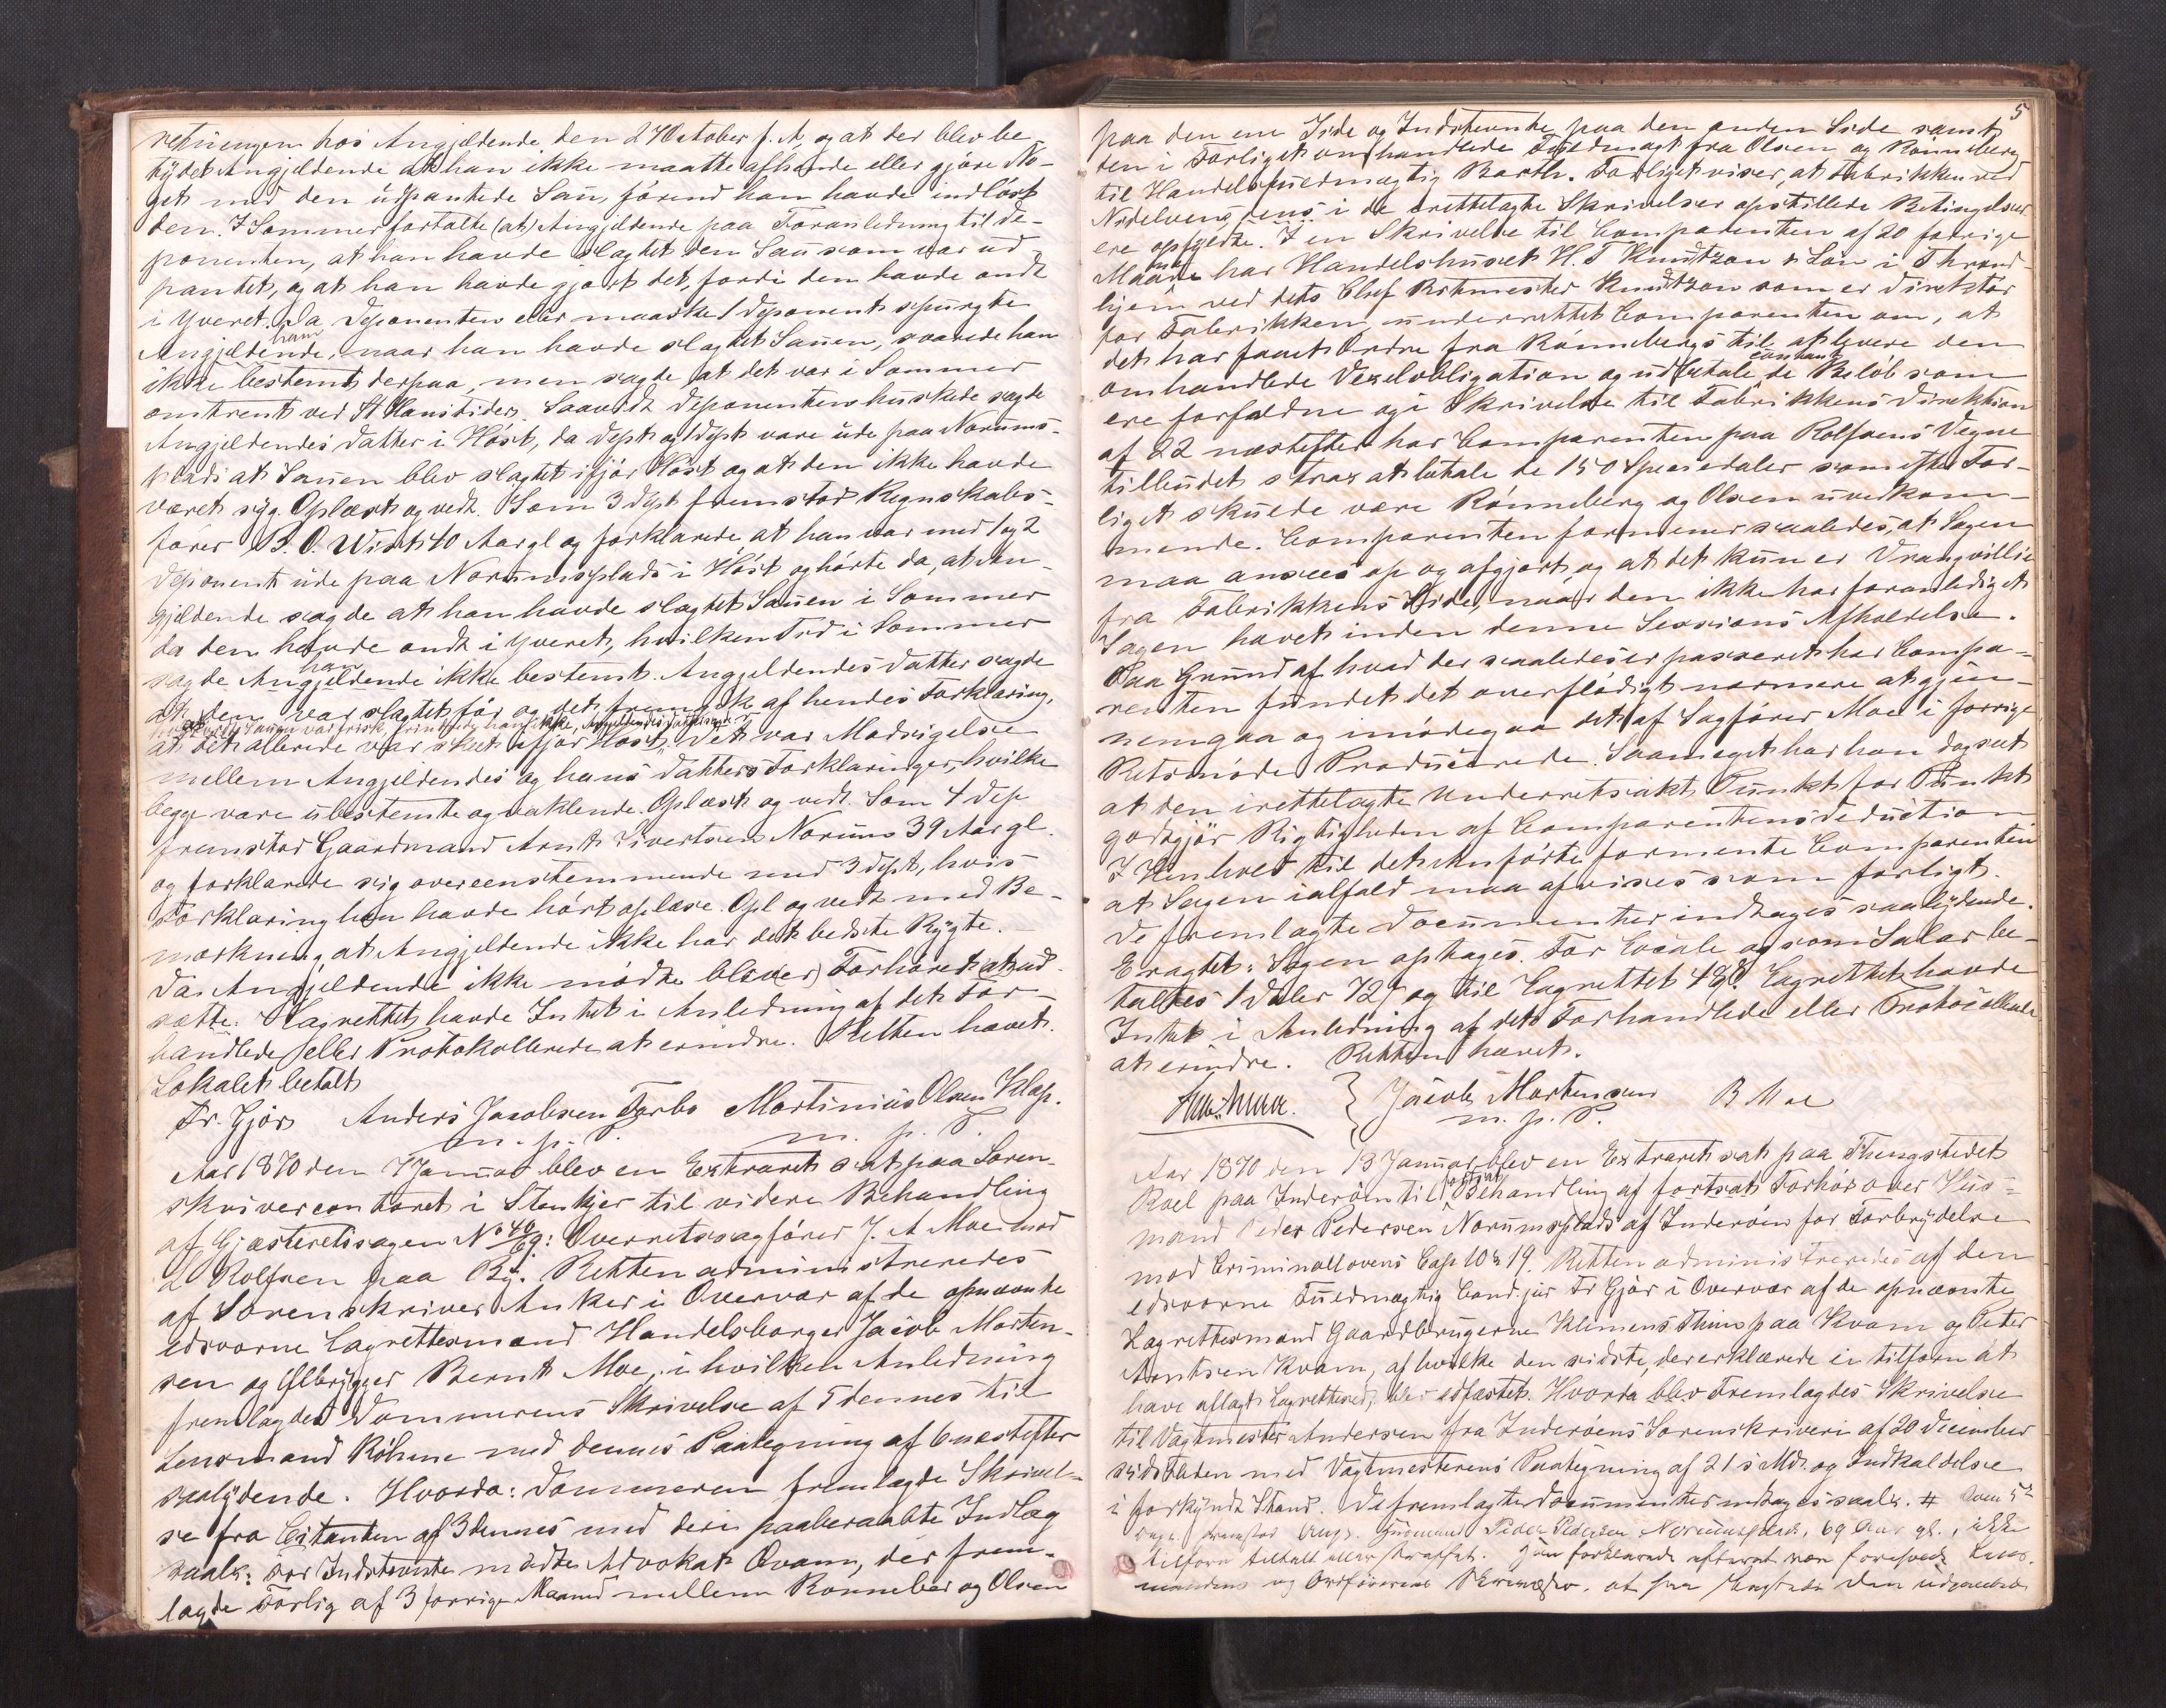 retningen hos Angjældende, den 27 October f. A, og at der blev be-
tydet Angjældende at han ikke maatte afhænde eller gjøre No-
get med den udpantede Sau, førend han havde indløst
den. I Sommer fortalte (at) Angjældende paa Foranledning til De-
ponenten, at han havde slagtet den Sau som var ud
pantet, og at han havde gjort det, fordi den havde ondt
i Yveret. Da Deponenten eller maaske 1 Deponent spurgte
Angjældende, naar han havde slagtet Sauen, svarede han
ikke bestemt derpaa, men sagde at det var i Sommer
omtrent ved St Hanstider. Saavidt Deponenten huskede sagde
Angjældendes Datter i Høst, da Dept og 1 Dept vare ude paa Norums-
plads at Sauen blev slagtet ifjor Høst og at den ikke havde
været syg. Oplæst og vedt. Som 3 Dept fremstod Regnskabs-
fører B. O. Wist 40 Aar gl og forklarede at han var med 1 og 2
Deponent ude paa Norumsplads i Høst og hørte da, at An-
gjældende sagde at han havde slagtet Sauen i Sommer
da den havde ondt i Yveret, hvilken Tid i Sommer
sagde Angjældende han ikke bestemt. Angjældendes Datter sagde
at den var slagtet før og det fremgik af hendes Forklaring,
at det allerede var skeet ifjor Høst. Det var Modsigelse
mellem Angjældendes og hans Datters Forklaringer, hvilke
begge vare ubestemte og vaklende. Oplæst og vedt. Som 4 Dep
fremstod Gaardmand Arnt Sivertsen Norum 39 Aar gl.
og forklarede sig overeenstemmende med 3 Dept, hvis
Forklaring han havde hørt oplæse. Opl og vedt med Be-
mærkning at Angjældende ikke har det bedste Rygte.
Da Angjældende ikke mødte blev(er) Forhøret at ud-
sætte. Lagrettet havde Intet i Anledning af det For-
handlede eller Protokollerede at erindre. Retten hævet.
Lokalet betalt
Fr. Gjør Anders Jacobsen Forbo Martinius Olsen Klap.
m. p. P. m. p. P.
Aar 1870 den 7 Januar blev en Extraret sat paa Soren-
skrivercontoret i Stenkjer til videre Behandling
af Gjæsteretssagen No 40/69: Overretssagfører J. A Moe mod
L Rolfsen paa By. Retten administreredes
af Sorenskriver Anker i Overvær af de opnævnte
edsvorne Lagrettesmænd Handelsborger Jacob Morten-
sen og Ølbrygger Bernt Moe, i hvilken Anledning
fremlagdes Dommerens Skrivelse af 5 dennes til
Lensmand Røhme med dennes Paategning af 6 næstefter
saalydende. Hvorda: Dommeren fremlagde Skrivel-
se fra Citanten af 3 dennes med deri paaberaabte Indlæg
saal: For Indstevnte mødte Advokat Qvam, der frem-
lagde Forlig af 3 forrige Maaned mellem Ronneber og Olsen
5
paa den ene Side og Indstevnte paa den anden Side samt
den i Forliget omhandlede Fuldmagt fra Olsen og Rønneberg
til Handelsfuldmægtig Barth. Forliget viser, at Fabrikken ved
Nidelvens eens i de irettelagte Skrivelser opstillede Betingelser
ere opfyldte. I en Skrivelse til Comparenten af 20 forrige
Maaned har Handelshuset H. T Knudtzon & Søn i Thrond-
hjem ved dets Chef Ritmester Knudtzon som er Direktør
for Fabrikken, underrettet Comparenten om, at
det har faaet Ordre fra Rønnebergs til at levere den
omhandlede Vexelobligation og udbetale contant de Beløb som
ere forfaldne og i Skrivelse til Fabrikkens Direktion
af 22 næstefter har Comparenten paa Rolfsens Vegne
tilbudet strax at betale de 150 Speciedaler som efter For-
liget skulde være Rønneberg og Olsen uvedkom-
mende. Comparenten formener saaledes, at Sagen
maa ansees op og afgjort, og at det kun er Vrangvillie
fra Fabrikkens Side, naar den ikke har foranlediget
Sagen hævet inden denne Sessions Afholdelse.
Paa Grund af hvad der saaledes er passeret har Compa-
renten fundet det overflødigt nærmere at gjen-
nemgaa og imødegaa det af Sagfører Moe i forrige
Retsmøde Producerede. Saameget har han dog seet
at den irettelagte Underretsakt Punkt for Punkt
godtgjør Rigtigheden af Comparentens Deduction
I Henhold til det Anførte formente Comparenten
at Sagen ialfald maa afvises som forligt.
De fremlagte Documenter indtages saalydende.
Eragtet: Sagen optages. For Locale og som Salar be-
taltes 1 Daler 72 s og til Lagrettet 48 s. Lagrettet havde
Intet i Anledning af det Forhandlede eller Protocollerede
at erindre. Retten hævet.
Jacob Mortensen B Moe
m. p. P.
Aar 1870 den 13 Januar blev en Extraret sat paa Thingstedet
Roel paa Inderøen til fortsat Behandling af fortsat Forhør over Huus-
mand Peder Pedersen Norumsplads af Inderøen for Forbrydelse
mod Criminallovens Cap 10 § 19. Retten administreredes af den
edsvorne Fuldmægtig Cand. jur Fr Gjør i Overvær af de opnævnte
Lagrettesmænd Gaardbrugerne Klemens Thins paa Kvam og Peter
Arntsen Kvam, af hvilke den sidste, der erklærede ei tilforn at
have aflagt Lagrettesed, blev edfæstet. Hvorda blev Fremlagdes Skrivelse
til Vagtmester Andersen fra Inderøens Sorenskriveri af 20 December
sidstleden med Vagtmesterens Paategning af 21 s Md. og Indkaldelse
i forkyndt Stand. De fremlagte Documenter indtages saal.
fremstod Angj. Huusmand Peder Pedersen Norumsplads, 69 Aar gl., ikke
tilforn tiltalt eller straffet. Han forklarede efterat være foreholdt Lens-
mandens og